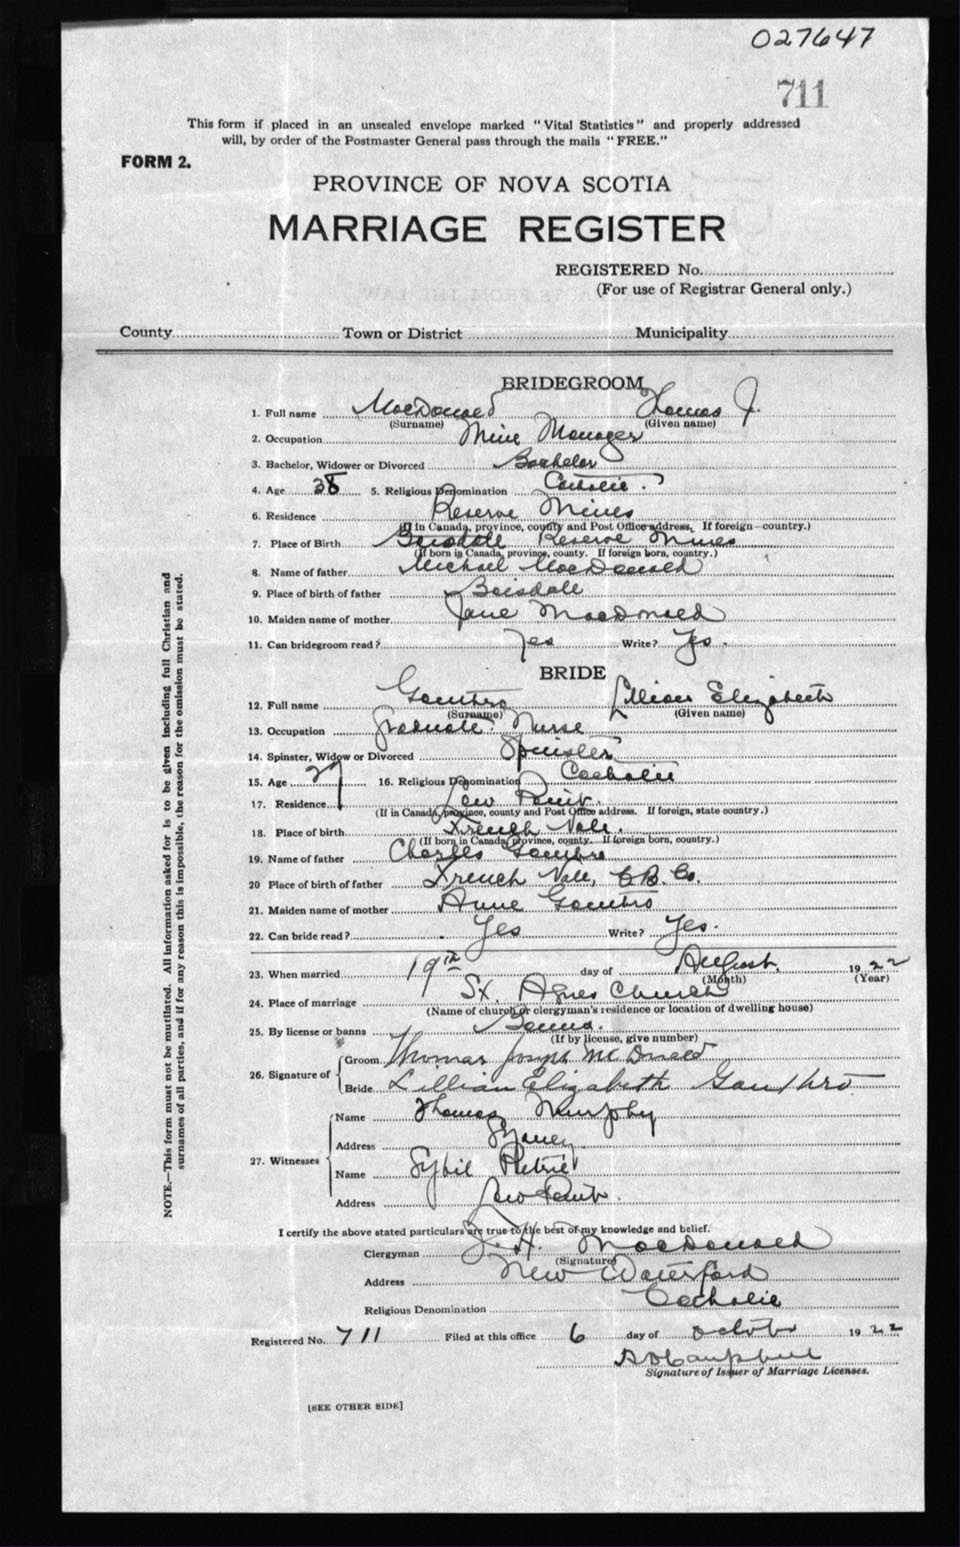 027647
711
This form if placed in an unsealed envelope marked "Vital Statistics" and properly addressed
will, by order of the Postmaster General pass through the mails "FREE."
FORM 2.
PROVINCE OF NOVA SCOTIA
MARRIAGE REGISTER
REGISTERED No.
(For use of Registrar General only.)
County Town or District Municipality
BRIDEGROOM
1. Full name MacDonald Thomas J.
(Surname) (Given name)
2. Occupation Mine Manager
3. Bachelor, Widower or Divorced Bachelor
4. Age 38 5. Religious Denomination Catholic
6. Residence Reserve Mines
(If in Canada, province, county and Post Office address. If foreign—country.)
7. Place of Birth Boisdale Reserve Mines
(If born in Canada, province, county. If foreign born, country.)
8. Name of father Michael MacDonald
9. Place of birth of father Boisdale
10. Maiden name of mother Jane MacDonald
11. Can bridegroom read? Yes Write? Yes.
BRIDE
12. Full name Gouthro Lillian Elizabeth
(Surname) (Given name)
13. Occupation Graduate Nurse
14. Spinster, Widow or Divorced Spinster
15. Age 27 16. Religious Denomination Catholic
17. Residence Low Point.
(If in Canada, province, county and Post Office address. If foreign, state country.)
18. Place of birth French Vale.
(If born in Canada, province, county. If foreign born, country.)
19. Name of father Charles Gouthro
20 Place of birth of father French Vale, C.B. Co.
21. Maiden name of mother Anne Gouthro
22. Can bride read? Yes Write? Yes.
23. When married 19th day of August, 1922
(Month) (Year)
24. Place of marriage St. Agnes Church
(Name of church or clergyman's residence or location of dwelling house)
25. By license or banns Banns.
(If by license, give number)
26. Signature of
Groom Thomas Joseph McDonald
Bride Lillian Elizabeth Gouthro
27. Witnesses
Name Thomas Murphy
Address Sydney
Name Sybil Petrie
Address Low Point.
I certify the above stated particulars are true to the best of my knowledge and belief.
Clergyman J. H. MacDonald
(Signature)
Address New Waterford
Religious Denomination Catholic
Registered No. 711 Filed at this office 6 day of October 1922
Campbell
Signature of Issuer of Marriage Licenses.
[SEE OTHER SIDE]
NOTE.—This form must not be mutilated. All information asked for is to be given including full Christian and
surnames of all parties, and if for any reason this is impossible, the reason for the omission must be stated.